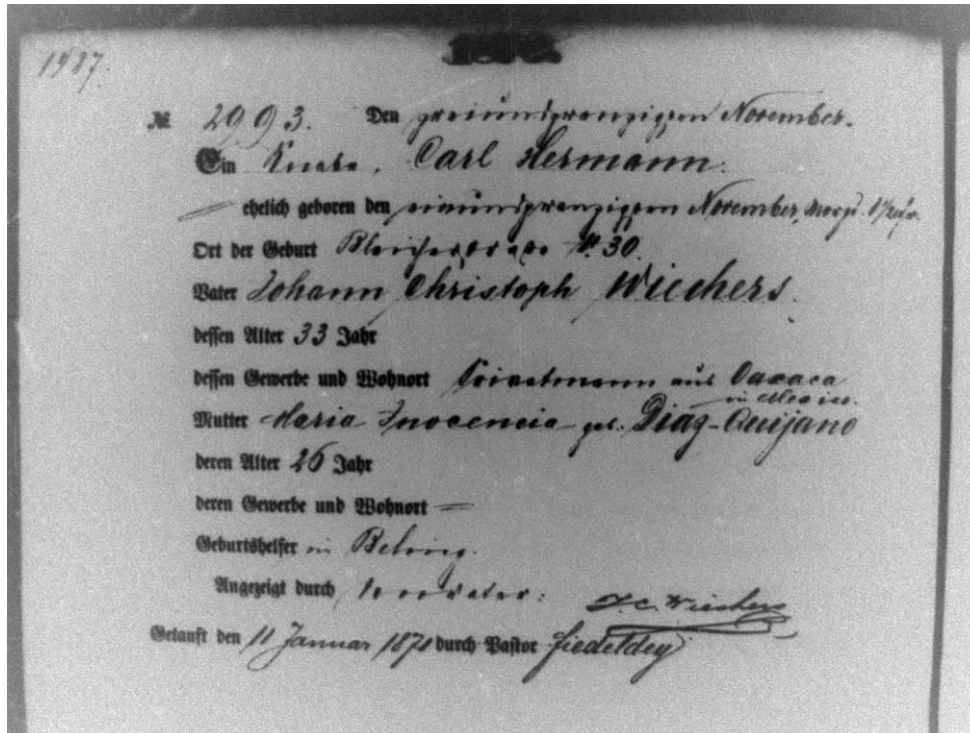 1487.
№ 2993. Den zweiundzwanzigsten November.
Ein Knabe, Carl Hermann.
ehelich geboren den einundzwanzigsten November, Morg.
Ort der Geburt Bleicherstraße № 30.
Vater Johann Christoph Wiechers.
dessen Alter 33 Jahr
dessen Gewerbe und Wohnort Privatmann aus Oaxaca
in Mexico.
Mutter Maria Inocencia geb. Diaz-Quijano
deren Alter 26 Jahr
deren Gewerbe und Wohnort
Geburtshelfer in
Angezeigt durch den Vater:
J. C. Wiechers
Getauft den 11 Januar durch Pastor Fiedeldey